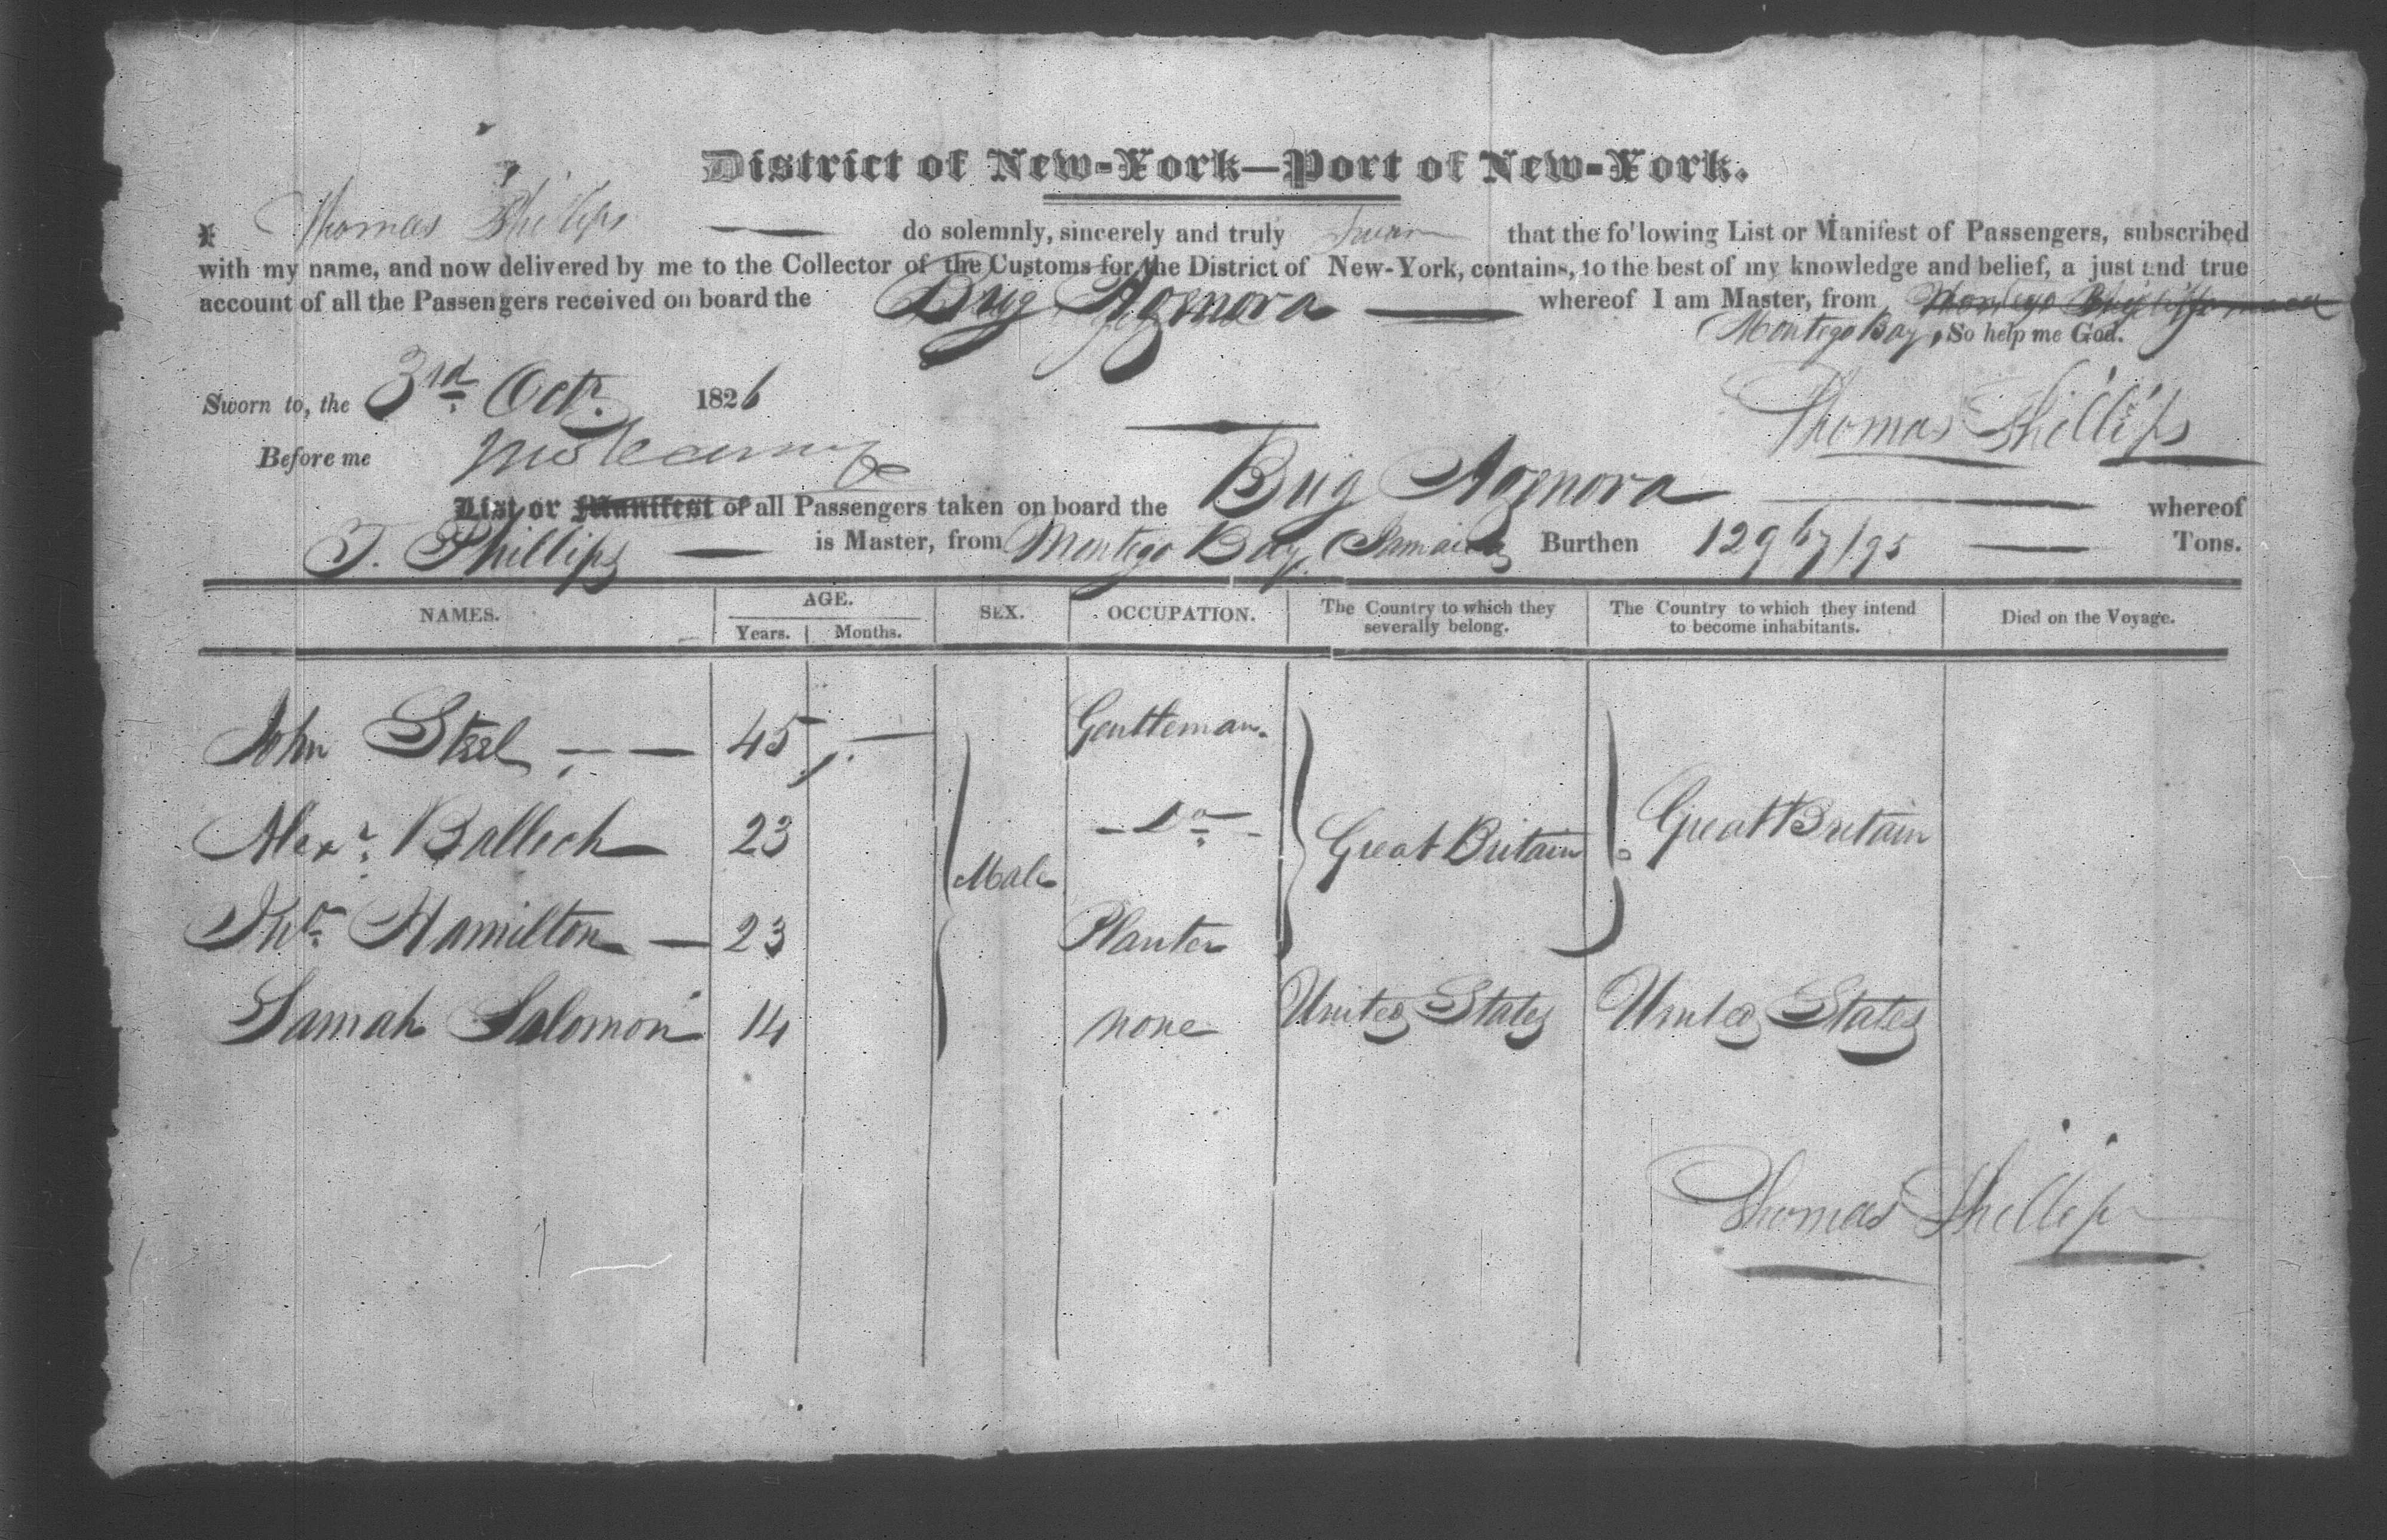 District of New-York—Port of New-York.
I Thomas Phillips do solemnly, sincerely and truly Swear that the following List or Manifest of Passengers, subscribed
with my name, and now delivered by me to the Collector of the Customs for the District of New-York, contains, to the best of my knowledge and belief, a just and true
account of all the Passengers received on board the Brig Agenora whereof I am Master, from
Montego Bay, So help me God.
Sworn to, the 3rd Octr. 1826
Thomas Phillips
Before me
List or Manifest of all Passengers taken on board the Brig Agenora whereof
T. Phillips is Master, from Montego Bay, Jamaica Burthen 129 67/95 Tons.
NAMES. AGE. SEX. OCCUPATION. The Country to which they severally belong. The Country to which they intend to become inhabitants. Died on the Voyage.
Years. Months.
John Steel 45 Gentleman.
Alexr. Balloch 23 Do Great Britain Great Britain
Male
Thos. Hamilton 23 Planter
Samah Solomon 14 none United States United States
Thomas Phillips